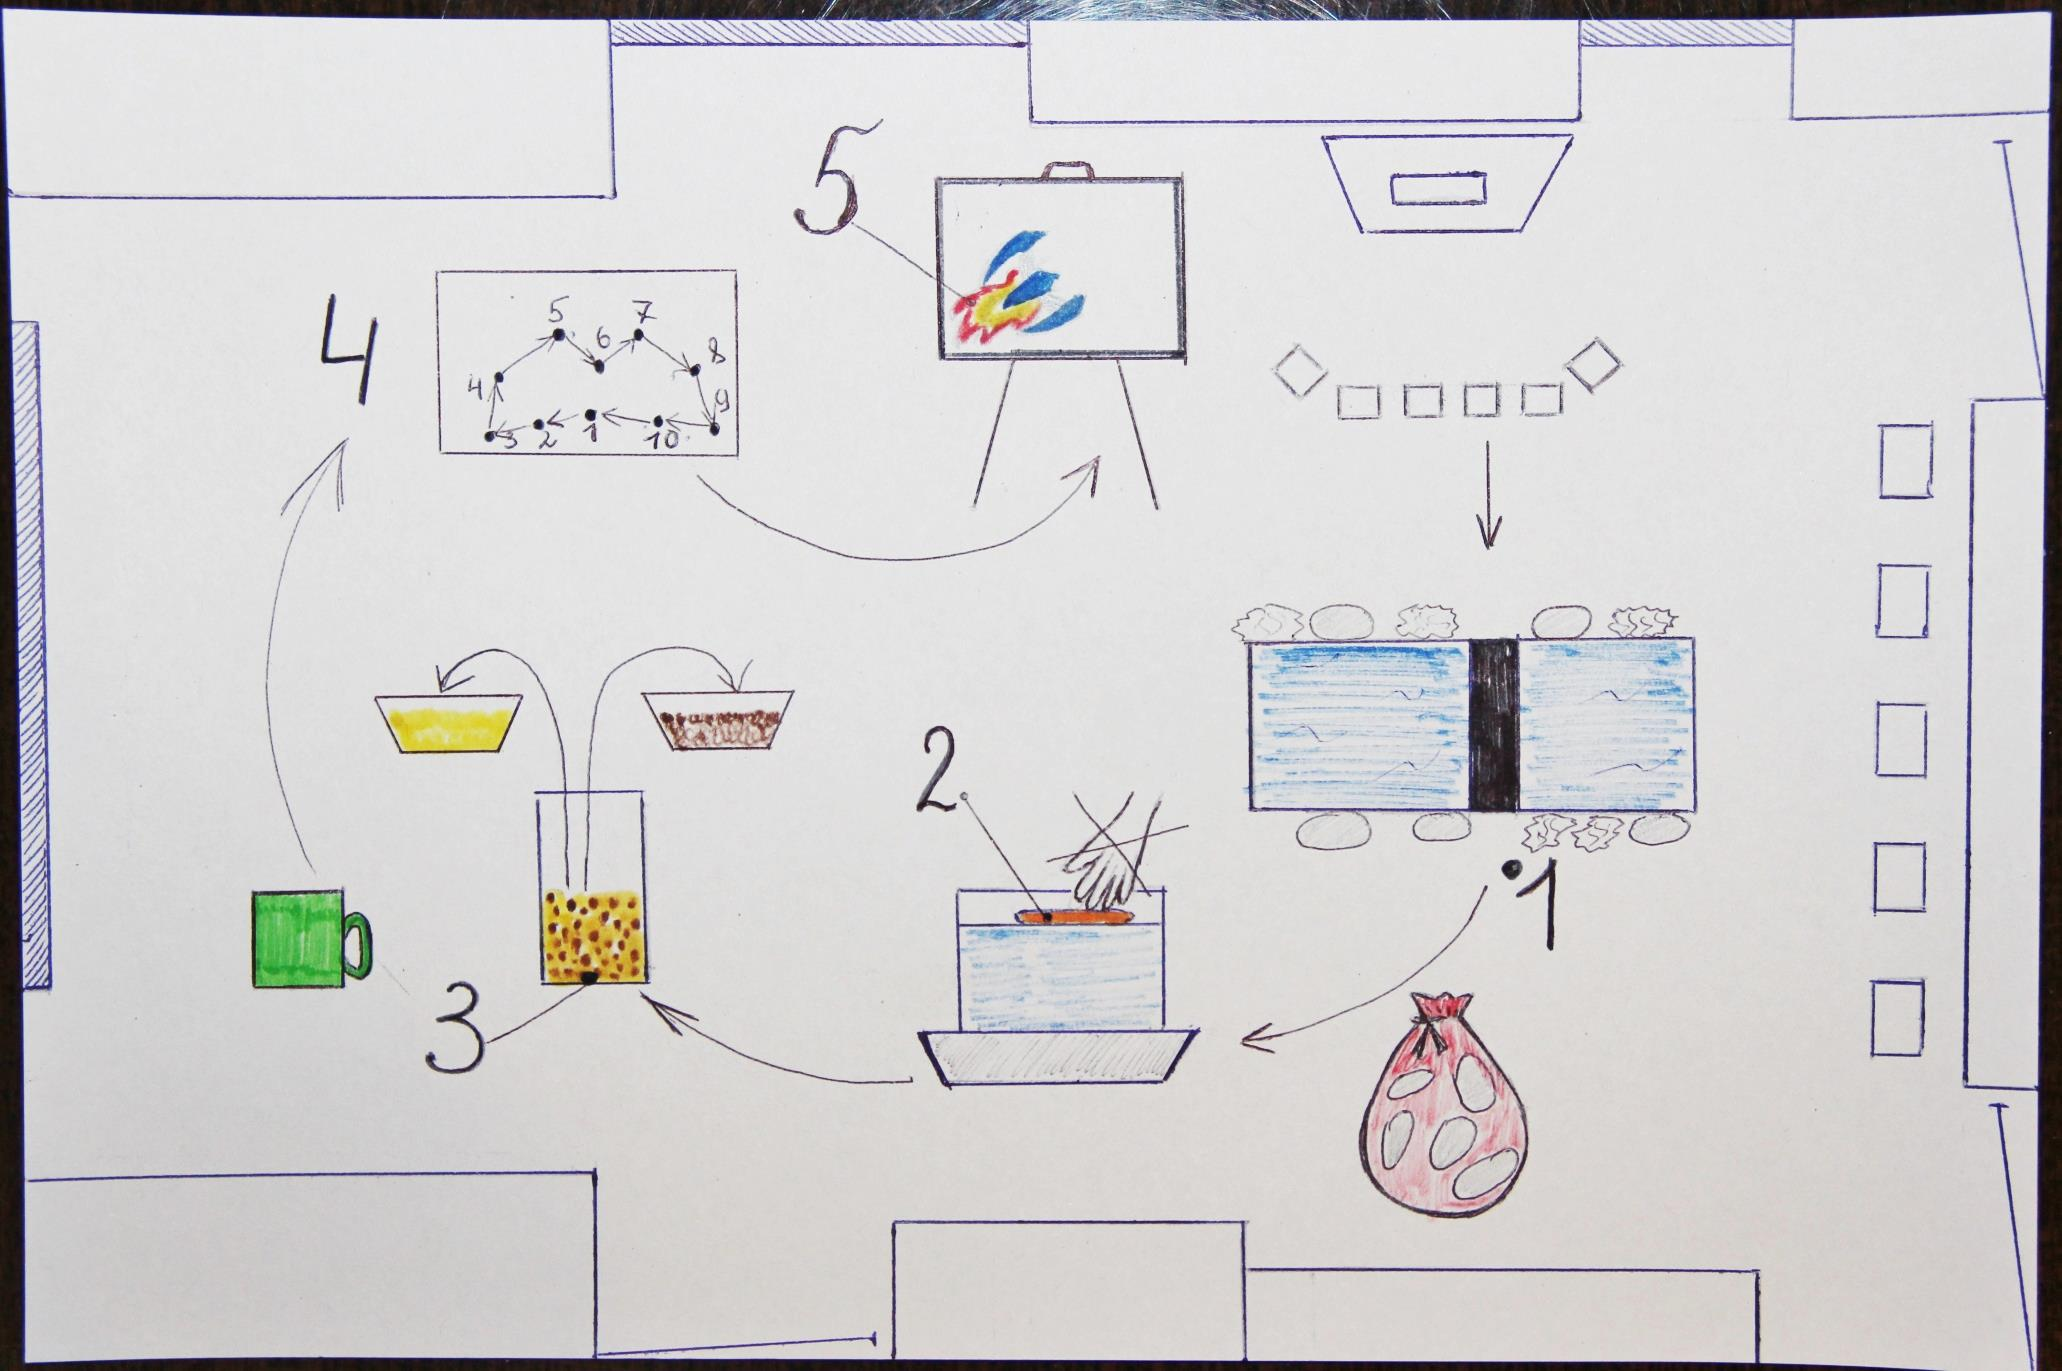 5
4
5 7
6
8
4
9
3 2 1 10
2.
1
3